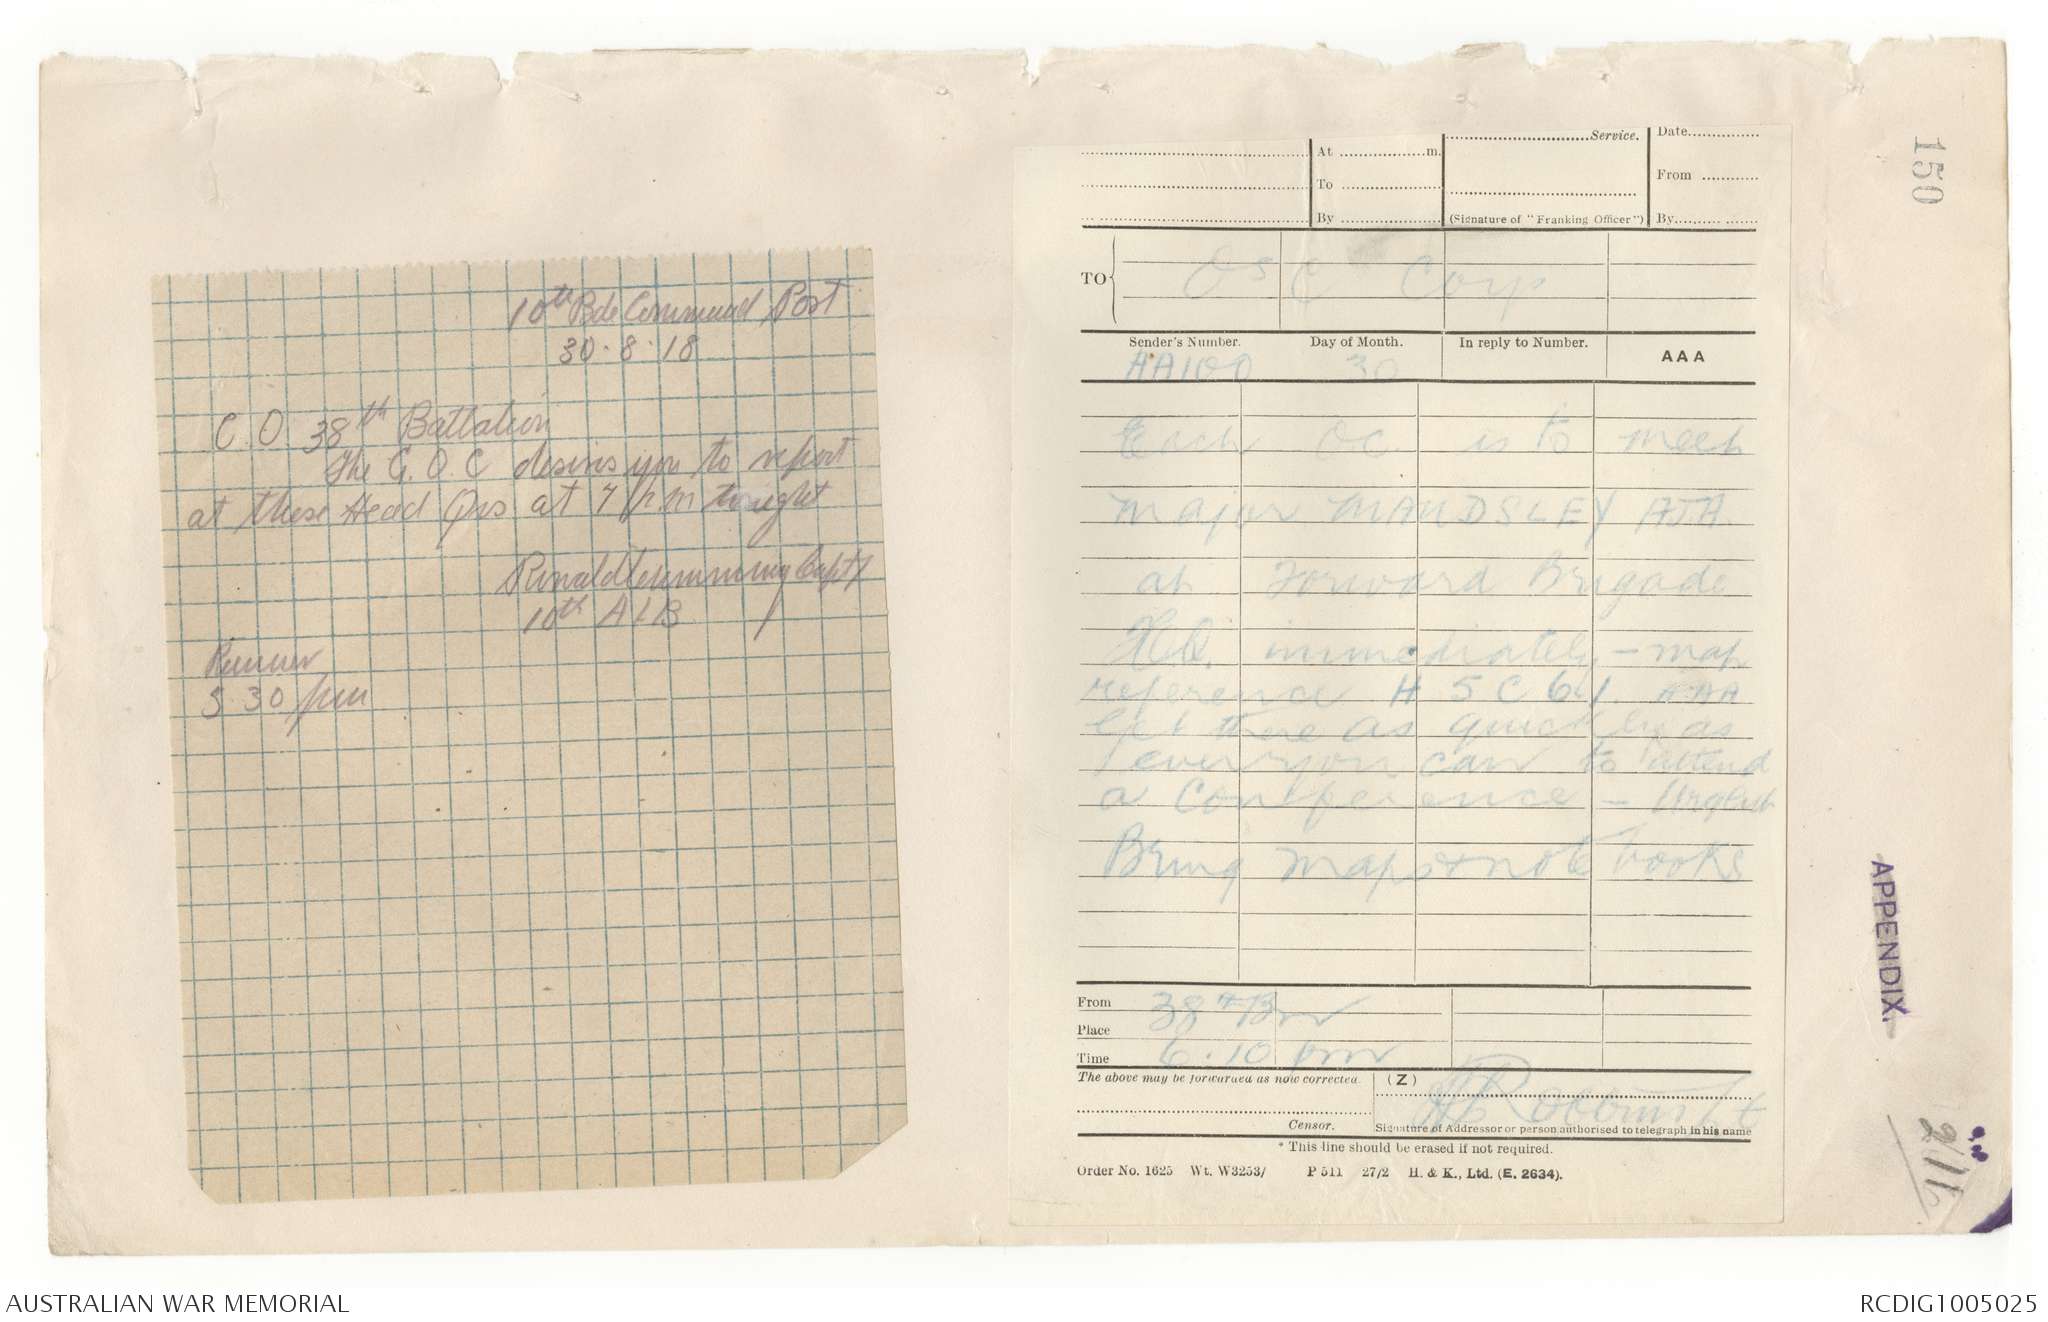 10th Bde Command Post
30.8.18
C.O. 38th Battalion
The G.O.C desires you to report
at these Head Qrs at 7 p.m tonight
Capt
10th AIB
Runner
5.30 pm
150
Service.
Date
At m.
To
From
By
(Signature of "Franking Officer")
By
TO
Os C Corp
Sender's Number.
Day of Month.
In reply to Number.
AAA
AA100
30
Each OC. is to meet
Major MAUDSLEY
at Forward Brigade
H.Q. immediately – map
reference H 5 C 6.1. AAA
Get there as quickly as
ever you can to attend
a Conference – Urgent
Bring maps & note books
From 38th Bn
Place
Time 6.10 pm
The above may be forwarded as now corrected.
(Z)
Censor.
Signature of Addressor or person authorised to telegraph in his name
* This line should be erased if not required.
Order No. 1625 Wt. W3253/ P 511 27/2 H. & K., Ltd. (E. 2634).
APPENDIX.
AUSTRALIAN WAR MEMORIAL
RCDIG1005025